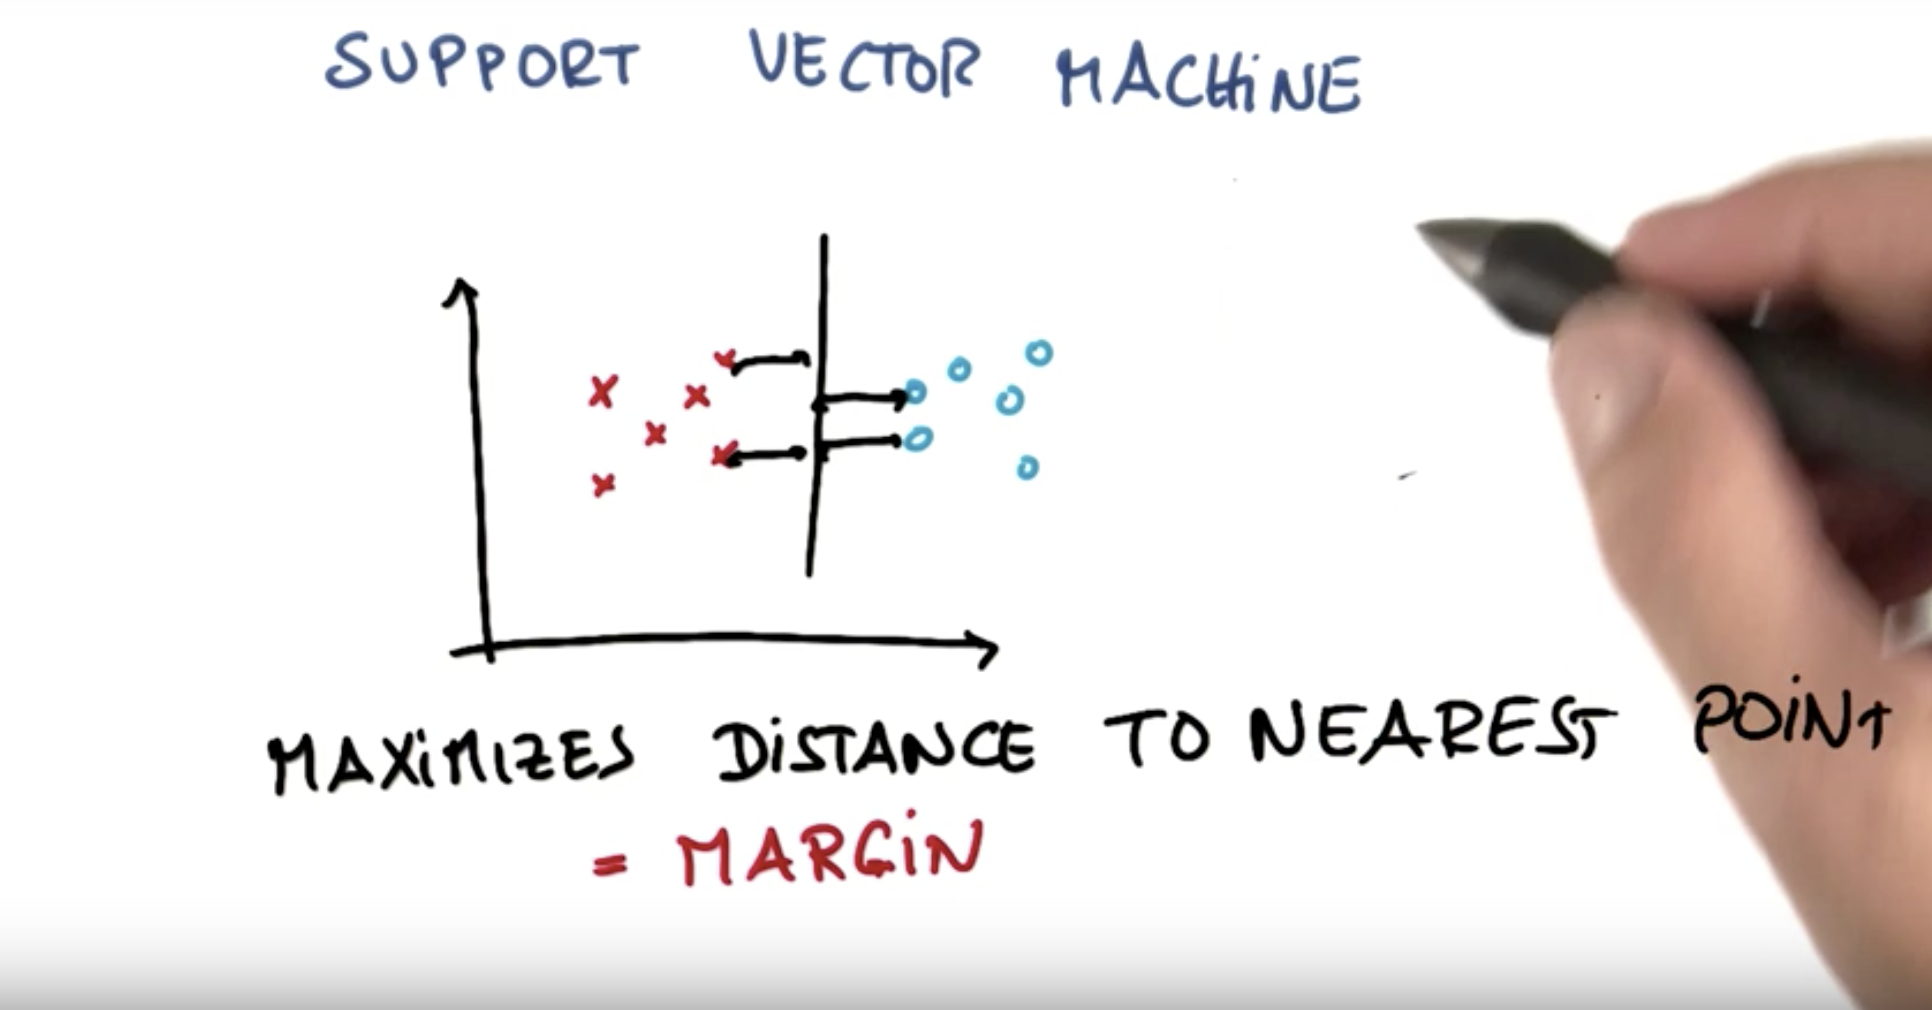 SUPPORT VECTOR MACHiNE
MAXiMIZES DiSTANCE TO NEAREST POiNt
= MARGiN